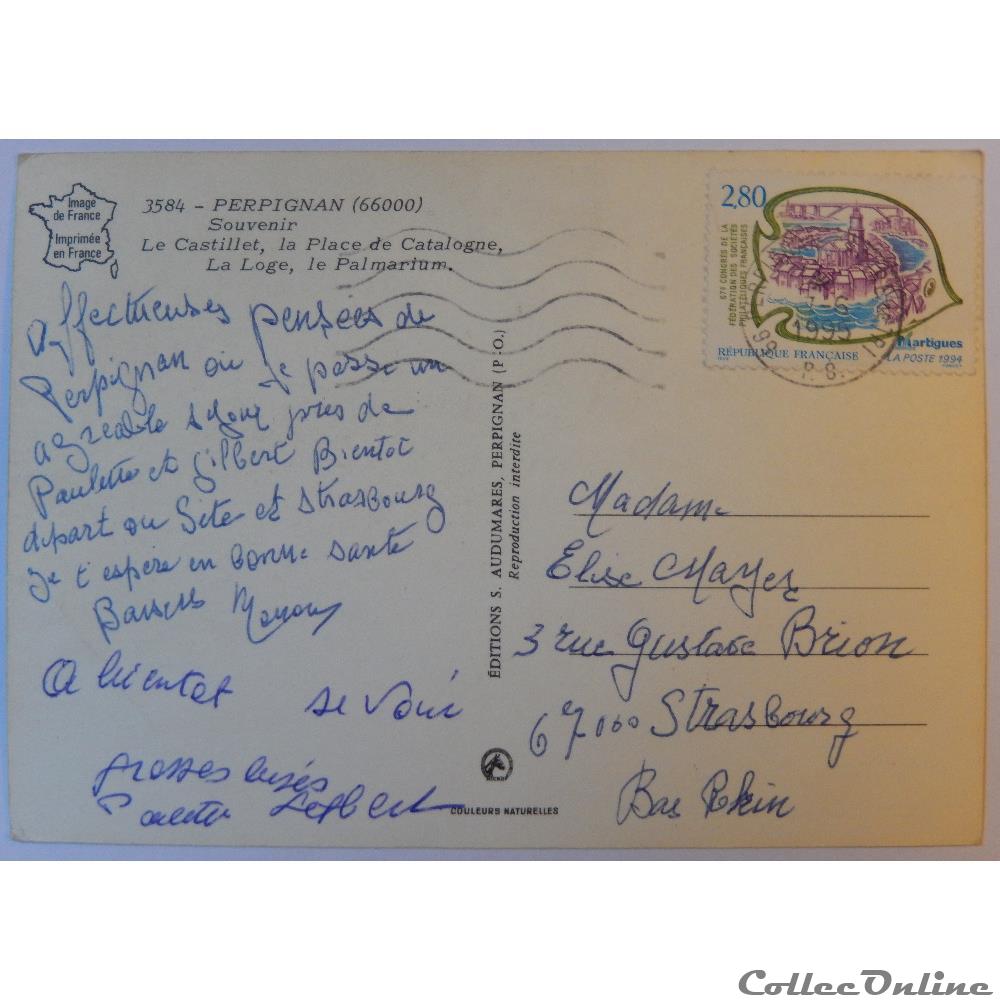 Image
de France
Imprimée
en France
3584 - PERPIGNAN (66000)
Souvenir
Le Castillet, la Place de Catalogne,
La Loge, le Palmarium.
Affectueuses pensées de
Perpignan ou je passe un
agreable séjour près de
Paulette et Gilbert Bientot
départ ou Sete et Strasbourg
Je t'espère en bonne santé
Baisers
A bientot se voir
grosses bises
ÉDITIONS S. AUDUMARES, PERPIGNAN (P.-O.)
Reproduction interdite
COULEURS NATURELLES
2,80
67e CONGRÈS DE LA
FÉDÉRATION DES SOCIÉTÉS
PHILATÉLIQUES FRANÇAISES
Martigues
RÉPUBLIQUE FRANÇAISE
LA POSTE 1994
1995
Madame
Elise Mayer
3 rue Gustave Brion
67000 Strasbourg
Bas Rhin
CollecOnline